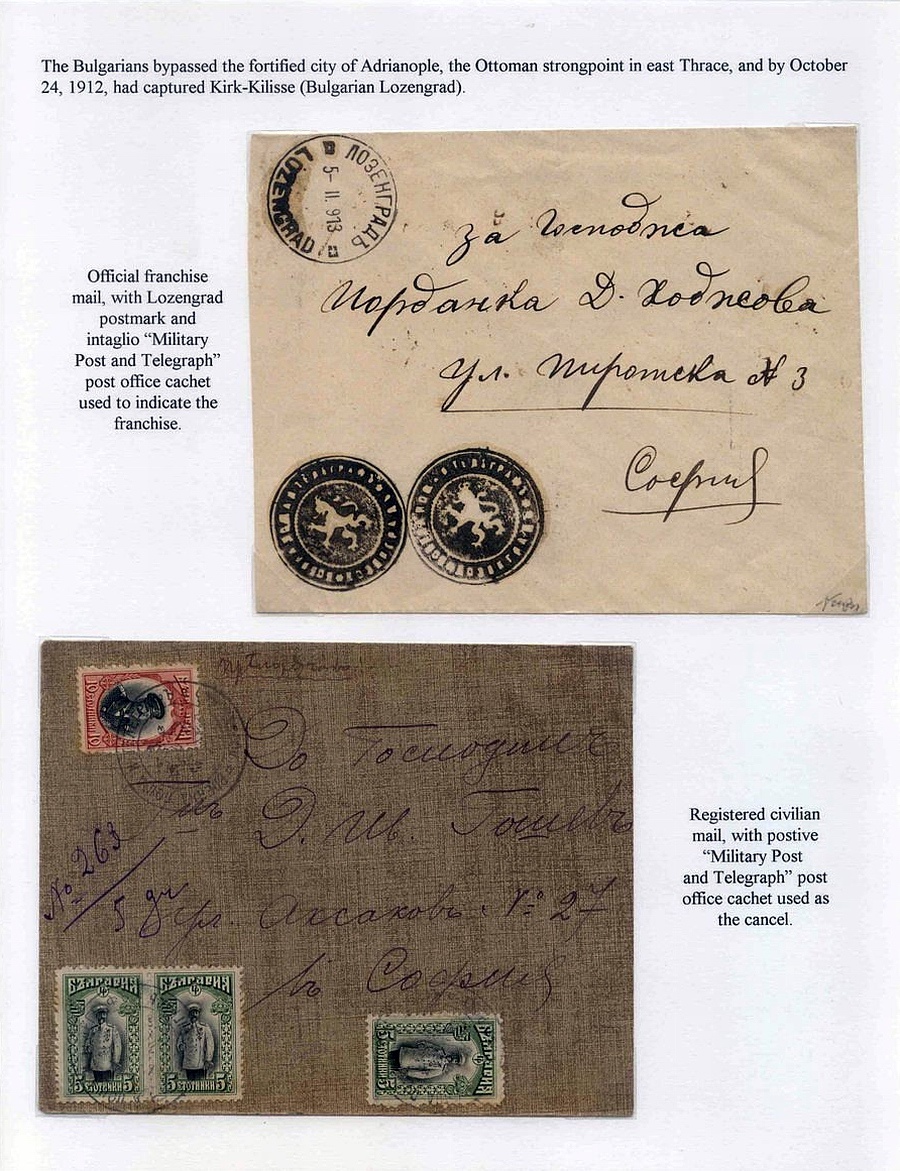 The Bulgarians bypassed the fortified city of Adrianople, the Ottoman strongpoint in east Thrace, and by October
24, 1912, had captured Kirk-Kilisse (Bulgarian Lozengrad).
ЛОЗЕНГРАДЪ
5- II. 913
LOZENGRAD
За Госпожа
Йорданка Д. Ходжова
Ул. Пиротска № 3
София
Official franchise
mail, with Lozengrad
postmark and
intaglio “Military
Post and Telegraph”
post office cachet
used to indicate the
franchise.
До Господинъ
Д. Ив. Гошевъ
№ 263
ул. Аксаковъ № 27
въ София
БЪЛГАРИЯ
5 СТОТИНКИ 5
БЪЛГАРИЯ
5 СТОТИНКИ 5
БЪЛГАРИЯ
Registered civilian
mail, with postive
“Military Post
and Telegraph” post
office cachet used as
the cancel.